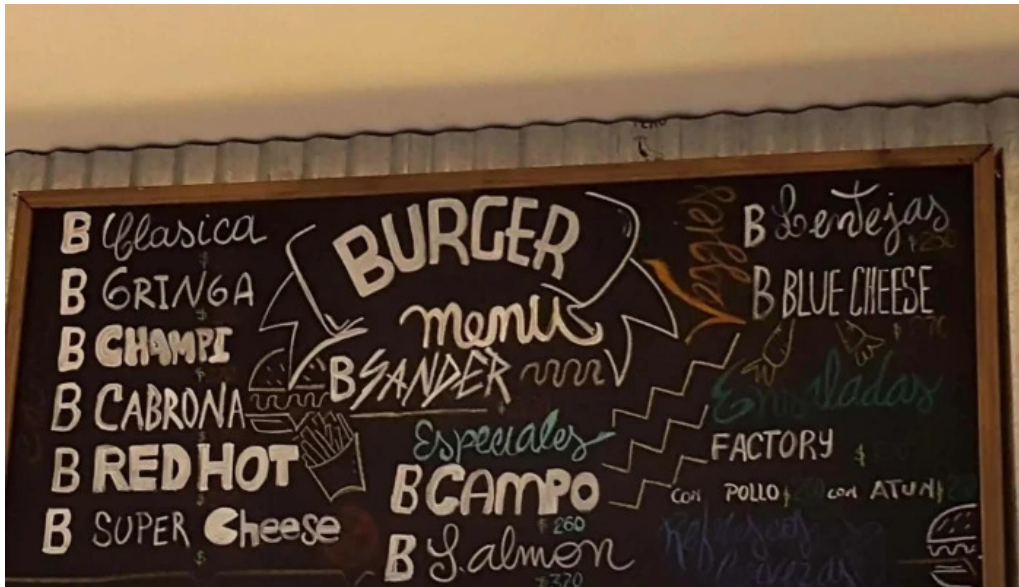 B Clasica
B GRINGA
B CHAMPI
B CABRONA
B RED HOT
B SUPER Cheese
BURGER
menú
B SANDER
Especiales
B CAMPO
$260
B Salmon
$370
Veggies
B Lentejas
B BLUE CHEESE
Ensaladas
FACTORY
CON POLLO $ con ATUN $
Refrescos
Cervezas